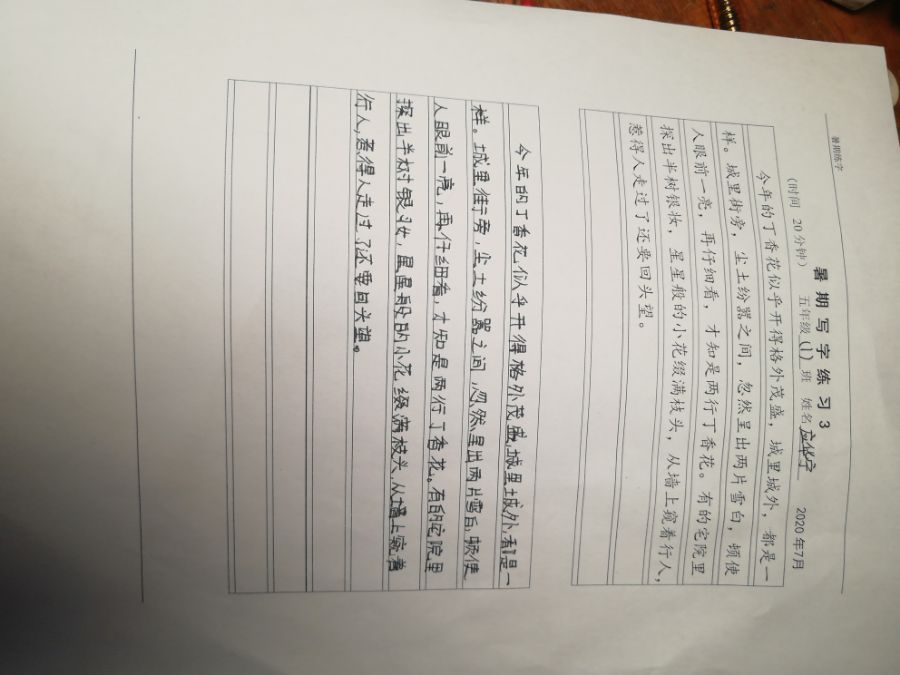 暑期练字
暑期写字练习3
(时间 20分钟) 五年级(1)班 姓名 2020年7月
今年的丁香花似乎开得格外茂盛，城里城外，都是一
样。城里街旁，尘土纷嚣之间，忽然呈出两片雪白，顿使
人眼前一亮，再仔细看，才知是两行丁香花。有的宅院里
探出半树银妆，星星般的小花缀满枝头，从墙上窥着行人，
惹得人走过了还要回头望。
今年的丁香花似乎开得格外茂盛，城里城外，都是一
样。城里街旁，尘土纷嚣之间，忽然呈出两片雪白，顿使
人眼前一亮，再仔细看，才知是两行丁香花。有的宅院里
探出半树银妆，星星般的小花缀满枝头，从墙上窥着
行人，惹得人走过了还要回头望。